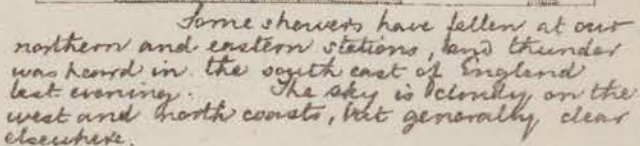 Some showers have fallen at our
northern and eastern stations, and thunder
was heard in the south east of England
last evening. The sky is cloudy on the
west and north coasts, but generally clear
elsewhere.